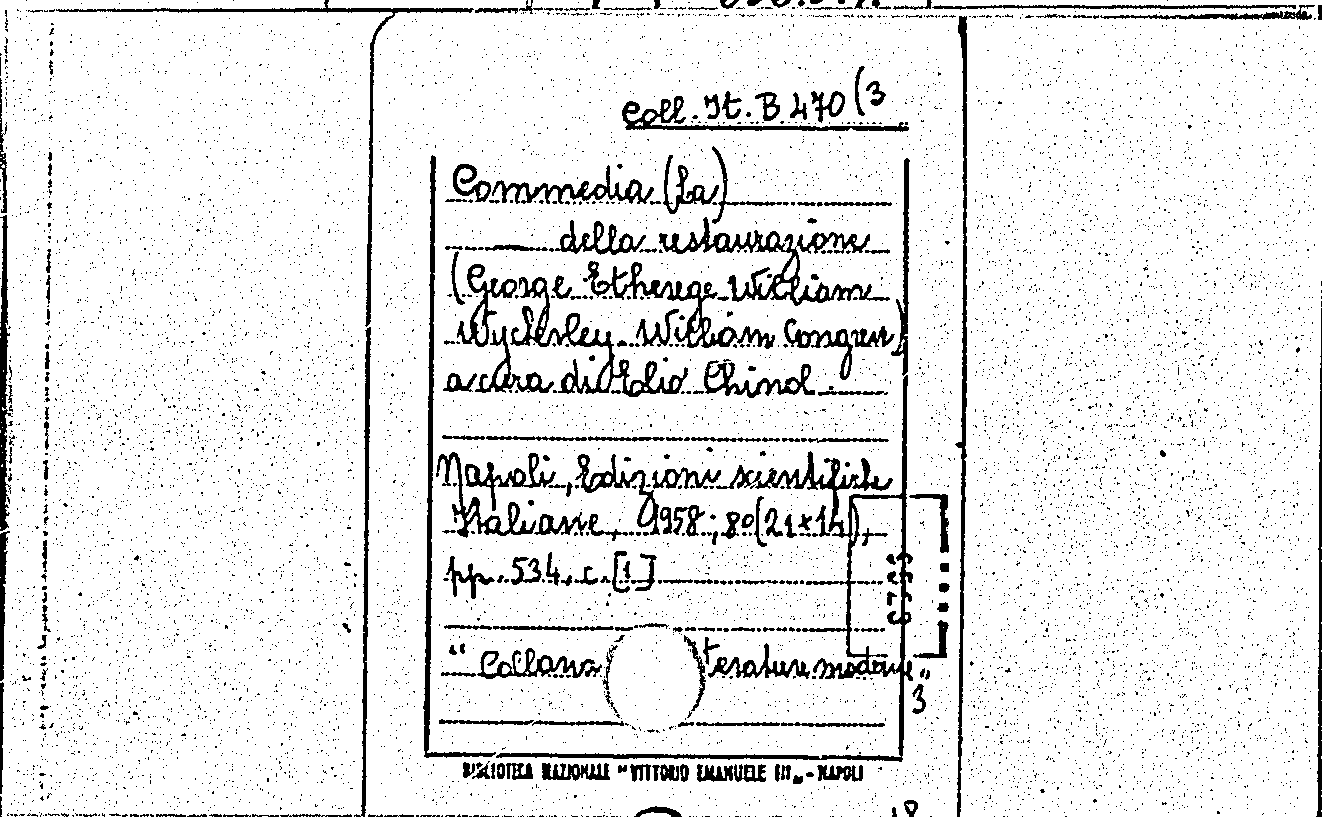 Coll. It. B 470 (3
Commedia (La)
della restaurazione
(George Etherege William
Wycherley. William Congreve)
a cura di Elio Chinol.
Napoli, Edizioni scientifiche
Italiane, 1958; 8° (21x14),
pp. 534, c. [1]
"Collana terature moderne"
3
BIBLIOTECA NAZIONALE "VITTORIO EMANUELE III" - NAPOLI
18